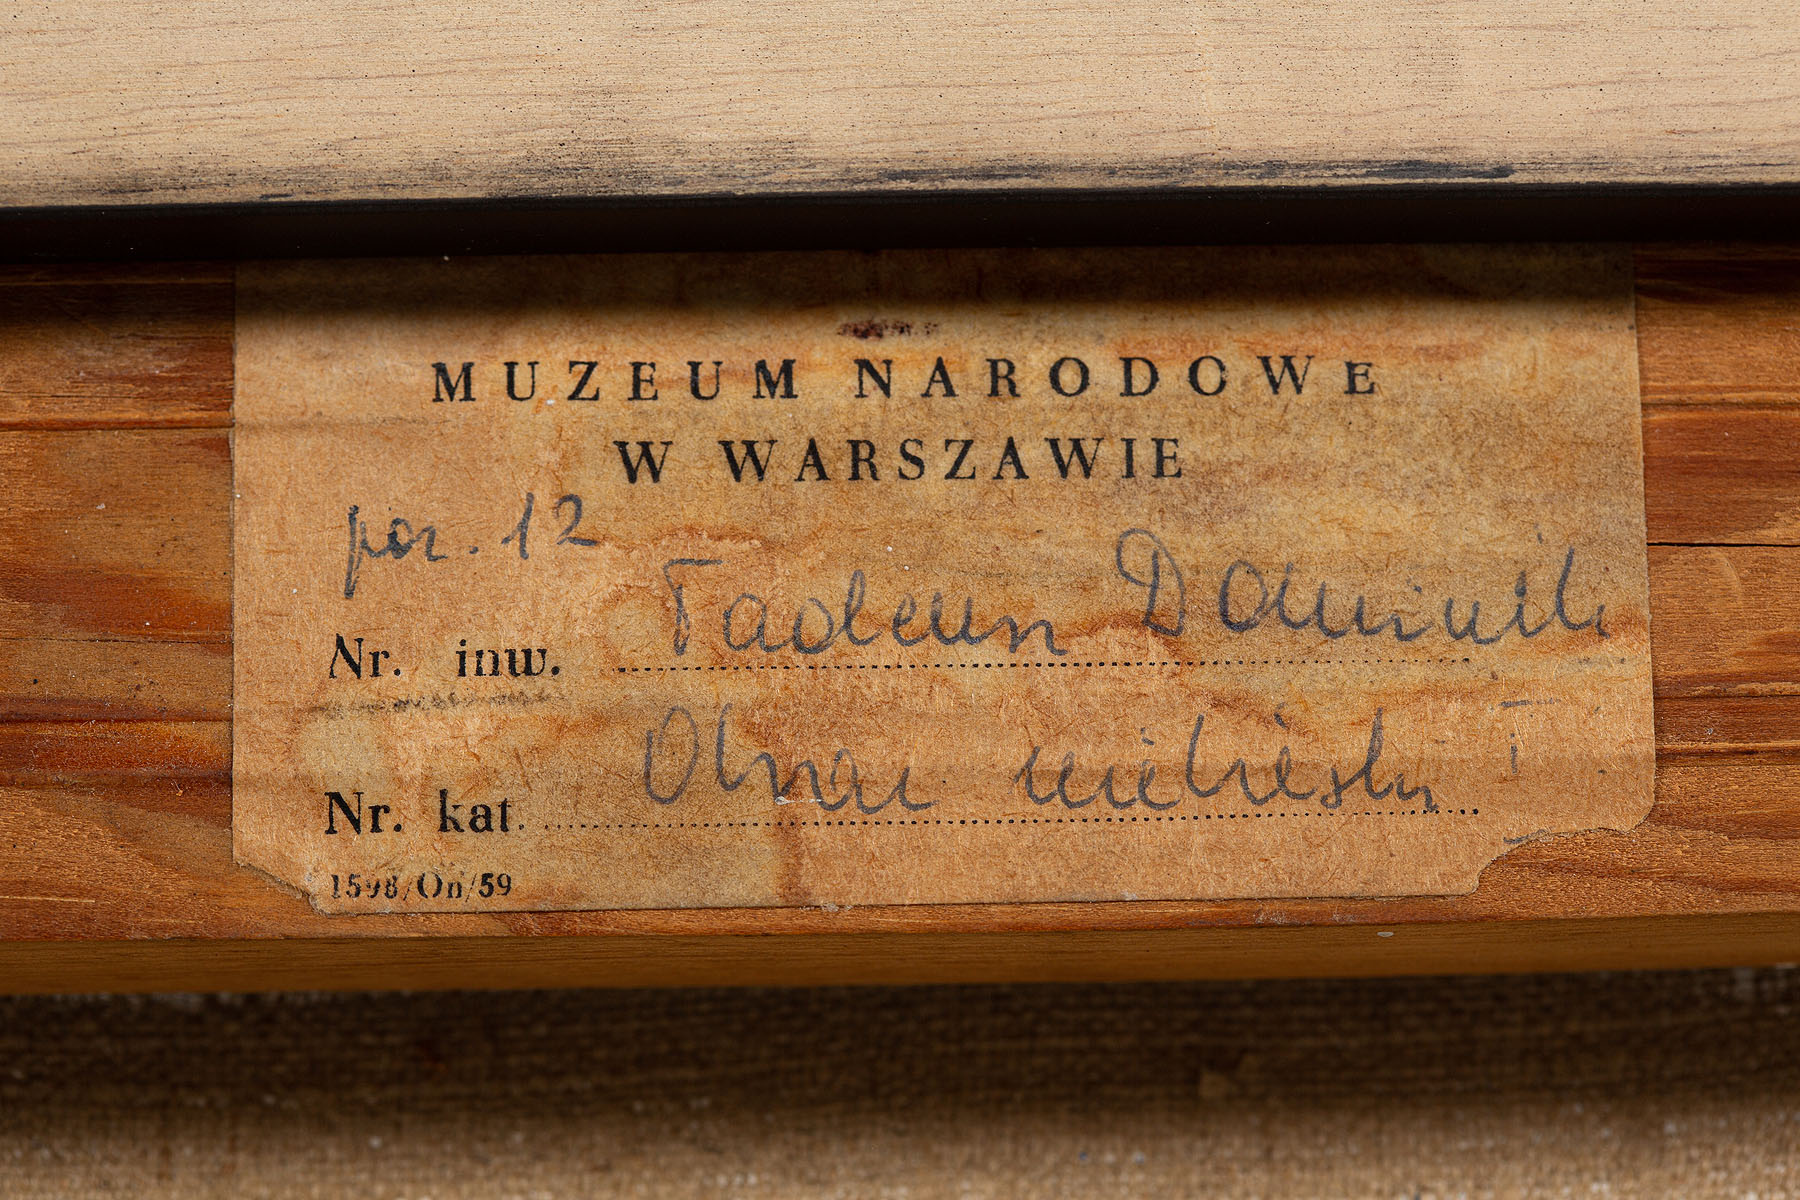 MUZEUM NARODOWE
W WARSZAWIE
poz. 12
Nr. inw. Tadeusz Dominik
Nr. kat. Obraz niebieski I
1598/On/59